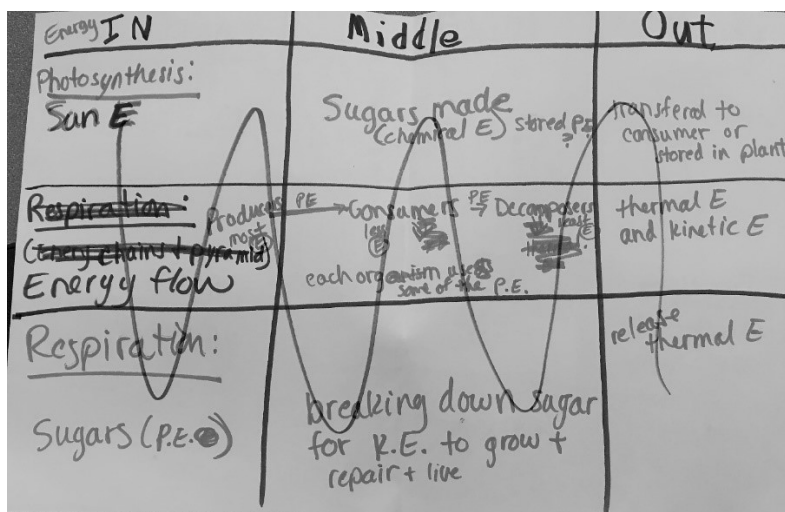 Energy IN
Middle
Out
Photosynthesis:
Sun E
Sugars made
(chemical E) stored P.E.
?
transferd to
consumer or
stored in plant
Respiration:
(Energy chain + pyramid)
Energy flow
Producers
most
E
PE
Consumers
less
E
P.E
Decomposers
least
E
each organism uses
some of the P.E.
thermal E
and kinetic E
Respiration:
Sugars (P.E.)
breaking down sugar
for K.E. to grow +
repair + live
release
thermal E